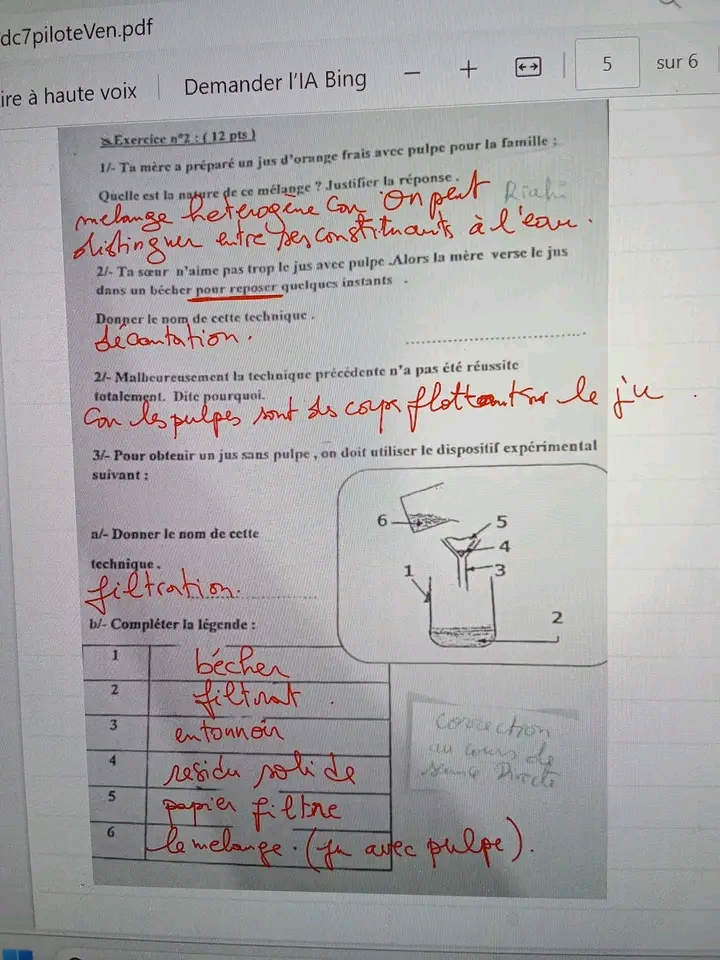 dc7piloteVen.pdf
ire à haute voix Demander l'IA Bing — + 5 sur 6
Exercice n°2 : ( 12 pts )
1/- Ta mère a préparé un jus d'orange frais avec pulpe pour la famille :
Quelle est la nature de ce mélange ? Justifier la réponse .
melange heterogène Car on peut Riahi
distinguer entre ses constituants à l'eau.
2/- Ta sœur n'aime pas trop le jus avec pulpe .Alors la mère verse le jus
dans un bécher pour reposer quelques instants .
Donner le nom de cette technique .
décantation.
2/- Malheureusement la technique précédente n'a pas été réussite
totalement. Dite pourquoi.
Car les pulpes sont des corps flottant sur le ju
3/- Pour obtenir un jus sans pulpe , on doit utiliser le dispositif expérimental
suivant :
a/- Donner le nom de cette
technique .
filtration.
b/- Compléter la légende :
6
5
4
3
1
2
1 bécher
2 filtrat .
3 entonnoir
4 residu solide
5 papier filtre
6 le melange . (ju avec pulpe).
Correction
au cours de
Directe